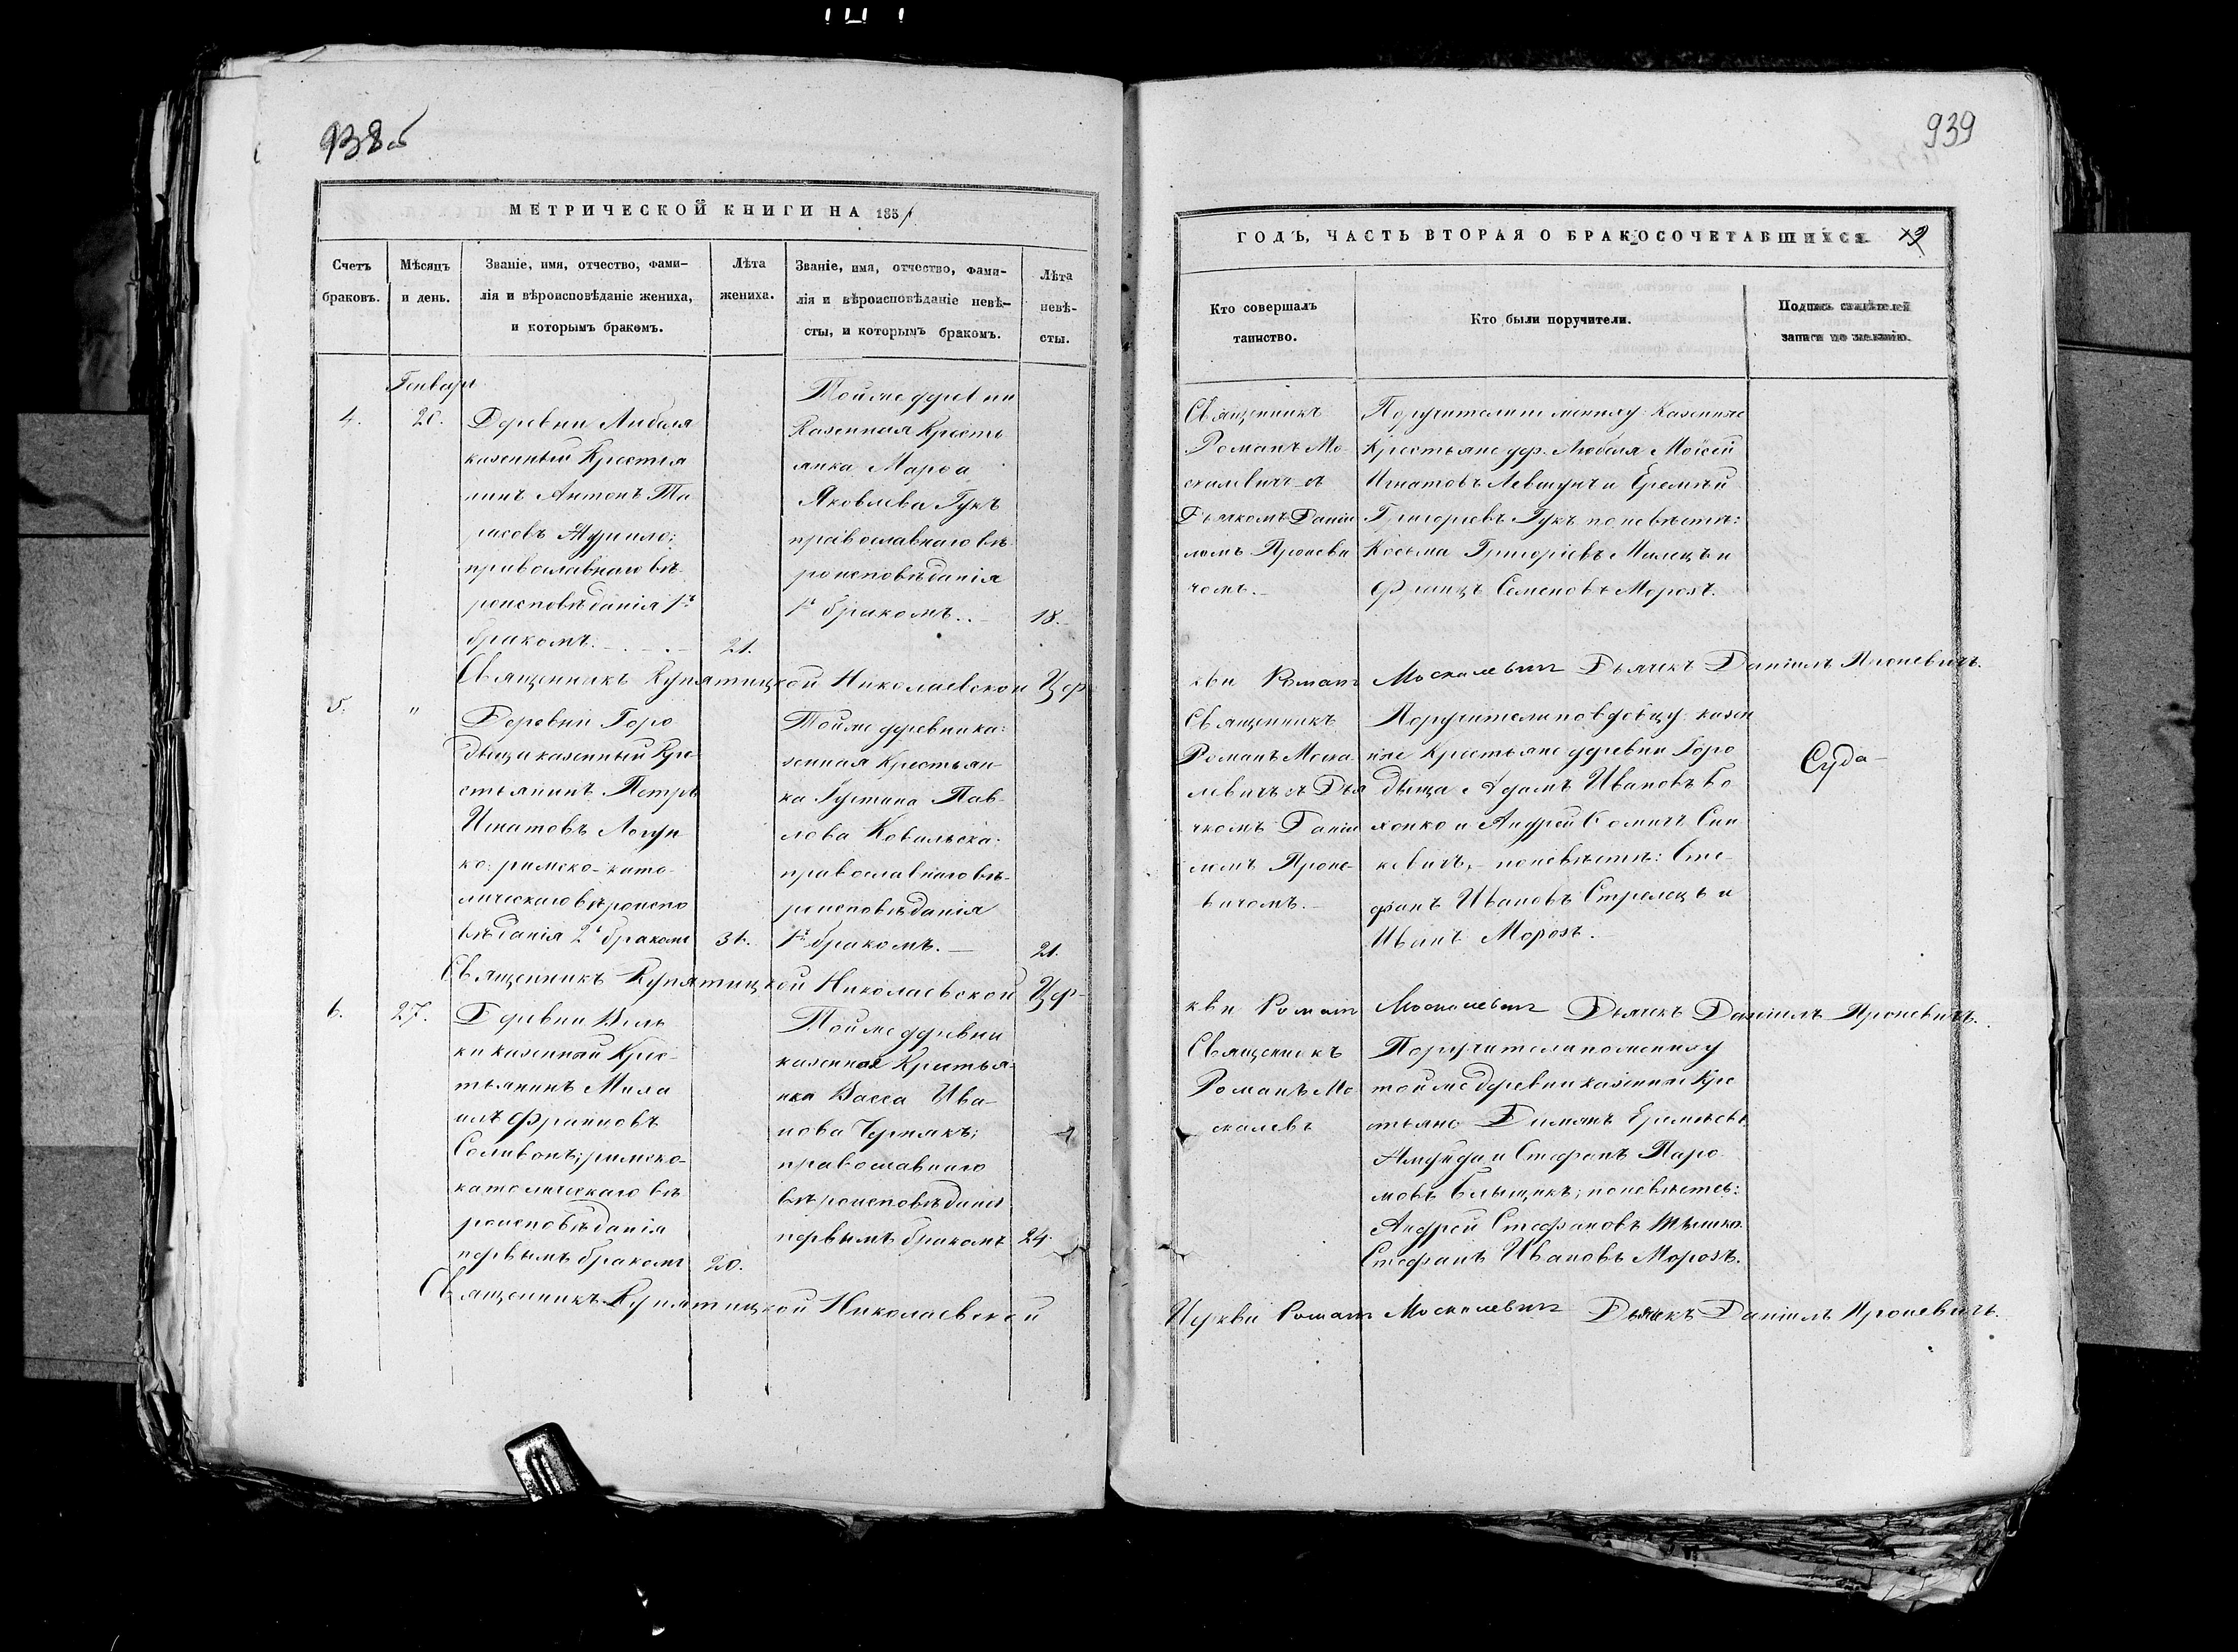 938 об
МЕТРИЧЕСКОЙ КНИГИ НА 1851
Счетъ
браковъ.
Мѣсяцъ
и день.
Званіе, имя, отчество, фами-
лія и вѣроисповѣданіе жениха,
и которымъ бракомъ.
Лѣта
жениха.
Званіе, имя, отчество, фами-
лія и вѣроисповѣданіе невѣ-
сты, и которымъ бракомъ.
Лѣта
невѣ-
сты.
Генварь
4.
20.
Деревни Любеля
казенный Крестья
нинъ Антонъ Та
расовъ
православнаго вѣ-
роисповѣданія 1ъ
бракомъ.
21.
Тойже дерев ни
Казенная Кресть
янка Марѳа
Яковлева Гукъ
православнаго вѣ-
роисповѣданія
1ъ бракомъ.
18.
Священникъ Купятицкой Николаевской Цер
5.
"
Деревни Горо
дища казенный Кре-
стьянинъ Петръ
Игнатовъ Логуи
ко: римско-като-
лическаго вѣроиспо
вѣданія 2ъ бракомъ
31.
Тойже деревни ка:
зенная Крестьян-
ка Густина Пав-
лова Ковальска:
православнаго вѣ-
роисповѣданія
1ъ бракомъ.
21.
Священникъ Купятицкой Николаевской Цер-
6.
27.
Деревни
ки казенный Крес-
тьянинъ Миха
илъ
римско-
католическаго вѣ
роисповѣданія
первымъ бракомъ
20.
Тойже деревни
казенная Крестья:
нка Васса Ива-
нова Чернякъ;
православнаго
вѣроисповѣданія
первымъ бракомъ
24.
Священникъ Купятицкой Николаевской
939
ГОДЪ, ЧАСТЬ ВТОРАЯ О БРАКОСОЧЕТАВШИХСЯ.
Кто совершалъ
таинство.
Кто были поручители.
Подпись свидѣтелей
записи по желанію.
Священникъ
Романъ Мо-
скалевичъ съ
Дьячкомъ Даніи
ломъ Проневи
чомъ.
Поручители по жениху: Казенные
Крестьяне дер. Любеля Моисей
Игнатовъ Левшунъ и Еремѣй
Григорьевъ Гукъ по невѣстѣ:
Косьма Григоріевъ Милецъ и
Францъ Семеновъ Морозъ.
кви Романъ Москалевичъ Дьячекъ Даніилъ Проневичъ.
Священникъ
Романъ Моска-
левичъ съ Дья
чкомъ Даніи
ломъ Проне-
вичомъ.
Поручители по вдовцу: казен
ные Крестьяне деревни Горо
дища Адамъ Ивановъ Бо
хонко и Андрей Син
кевичъ, - по невѣстѣ: Сте-
фанъ Ивановъ Стрелецъ и
Иванъ Морозъ.
кви Романъ Москалевичъ Дьячекъ Даніилъ Проневичъ.
Священникъ
Романъ Мо
скалевъ
Поручители по жениху
тойже деревни казенные Кре
стьяне Дамянъ Еремѣевъ
и Стефанъ
по невѣстѣ:
Андрей Стефановъ
Стефанъ Ивановъ Морозъ.
Церкви Романъ Москалевичъ Дьячекъ Даніилъ Проневичъ.
Суда